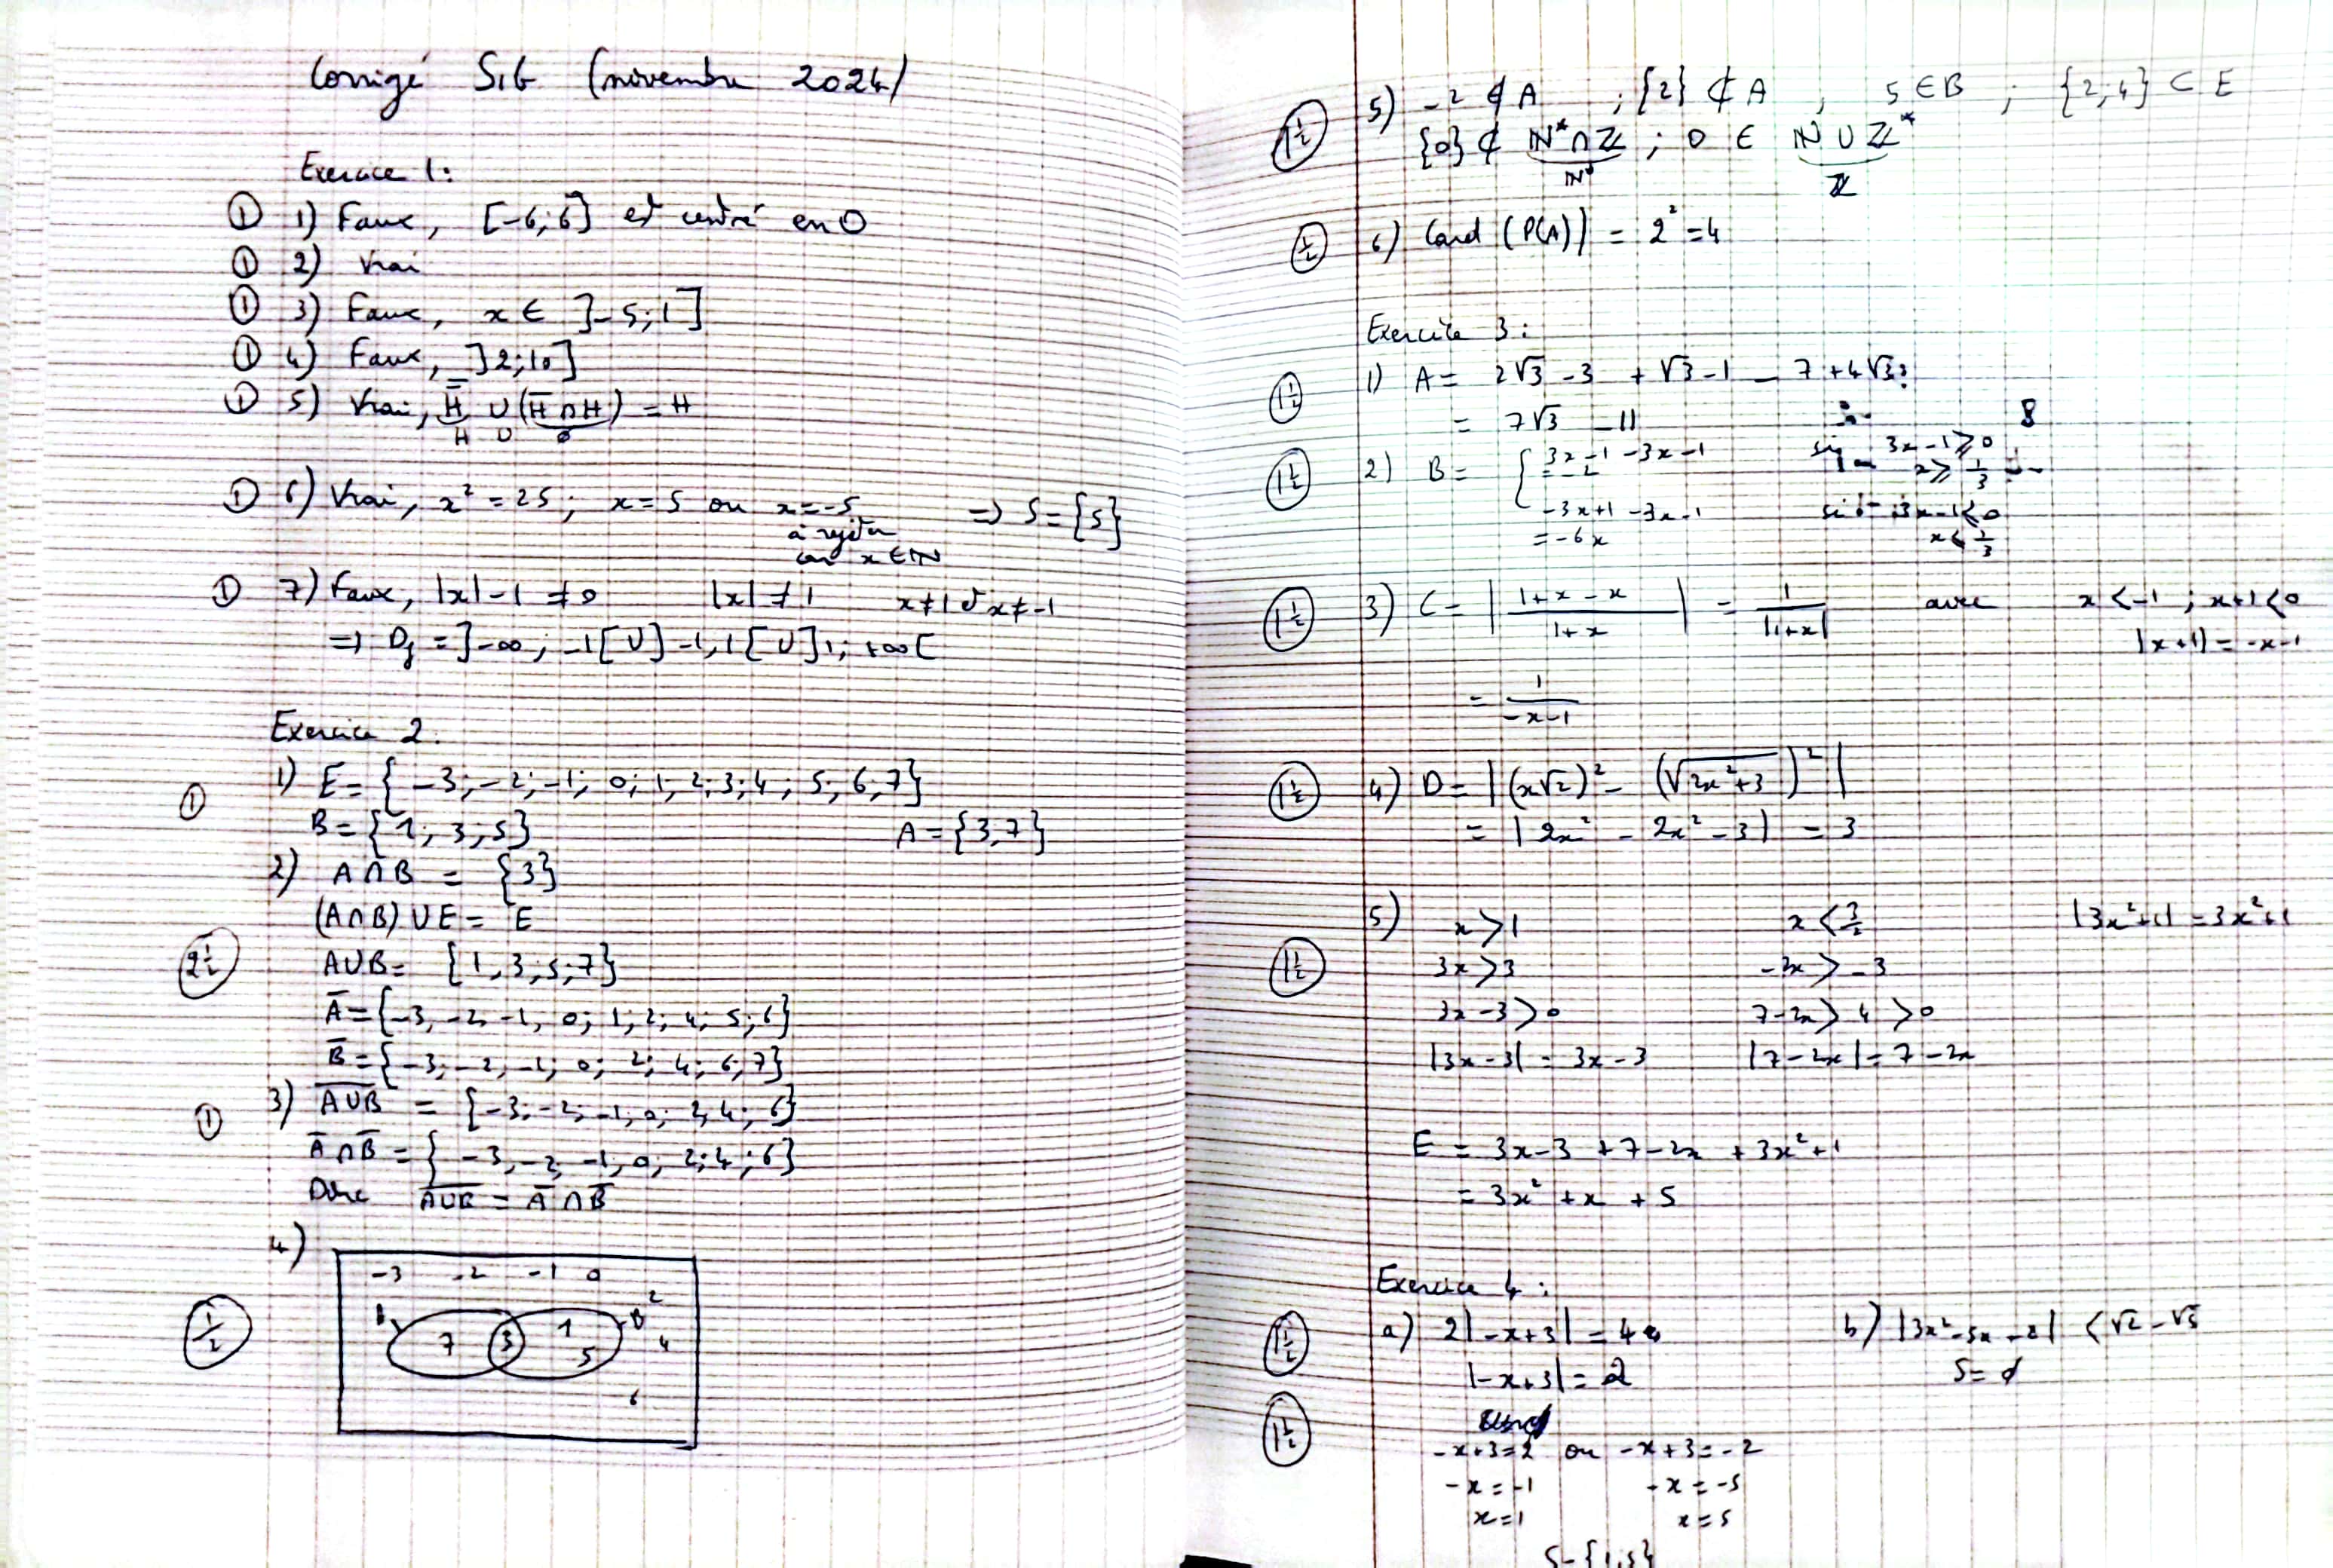 Corrigé S1G (novembre 2024)
Exercice 1:
① 1) Faux, [-6;6] est centré en 0
① 2) Vrai
① 3) Faux, x ∈ ]-5;1]
① 4) Faux, ]2;10]
① 5) Vrai, H̿ ∪ (H̅ ∩ H) = H
H ∪ ∅
① 6) Vrai, x² = 25; x = 5 ou x = -5 ⇒ S = {5}
à rejeter
car x ∈ ℕ
① 7) Faux, |x| - 1 ≠ 0 |x| ≠ 1 x ≠ 1 et x ≠ -1
⇒ Df = ]-∞; -1[ ∪ ]-1,1[ ∪ ]1; +∞[
Exercice 2.
1) E = { -3; -2; -1; 0; 1, 2; 3; 4; 5; 6; 7}
①
B = {1; 3; 5} A = {3,7}
2) A∩B = {3}
(A∩B) ∪ E = E
2½ A∪B = {1, 3; 5; 7}
A̅ = {-3, -2, -1, 0; 1; 2; 4; 5; 6}
B̅ = {-3; -2, -1; 0; 2; 4; 6; 7}
① 3) A∪B̅ = {-3; -2; -1; 0; 2; 4; 6}
A̅∩B̅ = { -3, -2, -1, 0; 2; 4; 6}
Donc A∪B̅ = A̅∩B̅
4)
-3 -2 -1 0
2
½ 7 3 1 B 4
5
6
1½ 5) -2 ∉ A ; {2} ⊄ A ; 5 ∈ B ; {2;4} ⊂ E
{0} ⊄ ℕ* ∩ ℤ ; 0 ∈ ℕ ∪ ℤ*
ℕ* ℤ
½ 6) Card (P(A)) = 2² = 4
Exercice 3:
1½ 1) A = 2√3 - 3 + √3 - 1 - 7 + 4√3
= 7√3 - 11 8
1½ 2) B = { 3x-1 -3x-1 si 3x-1 ⩾ 0
= -2 x ⩾ 1/3
-3x+1 -3x-1 si 3x-1 < 0
= -6x x < 1/3
1½ 3) C = | (1+x-x)/(1+x) | = 1/|1+x| avec x < -1 ; x+1 < 0
|x+1| = -x-1
= 1/(-x-1)
1½ 4) D = |(x√2)² - (√(2x²+3))²|
= |2x² - 2x² - 3| = 3
5) x > 1 x < 3/2 |3x²+1| = 3x²+1
1½ 3x > 3 -2x > -3
3x - 3 > 0 7-2x > 4 > 0
|3x-3| = 3x-3 |7-2x| = 7-2x
E = 3x-3 +7-2x +3x²+1
= 3x² + x + 5
Exercice 4:
1½ a) 2|-x+3| = 4 b) |3x²-5x-2| < √2-√5
|-x+3| = 2 S = ∅
1½
-x+3=2 ou -x+3=-2
-x = -1 -x = -5
x=1 x=5
S={1;5}